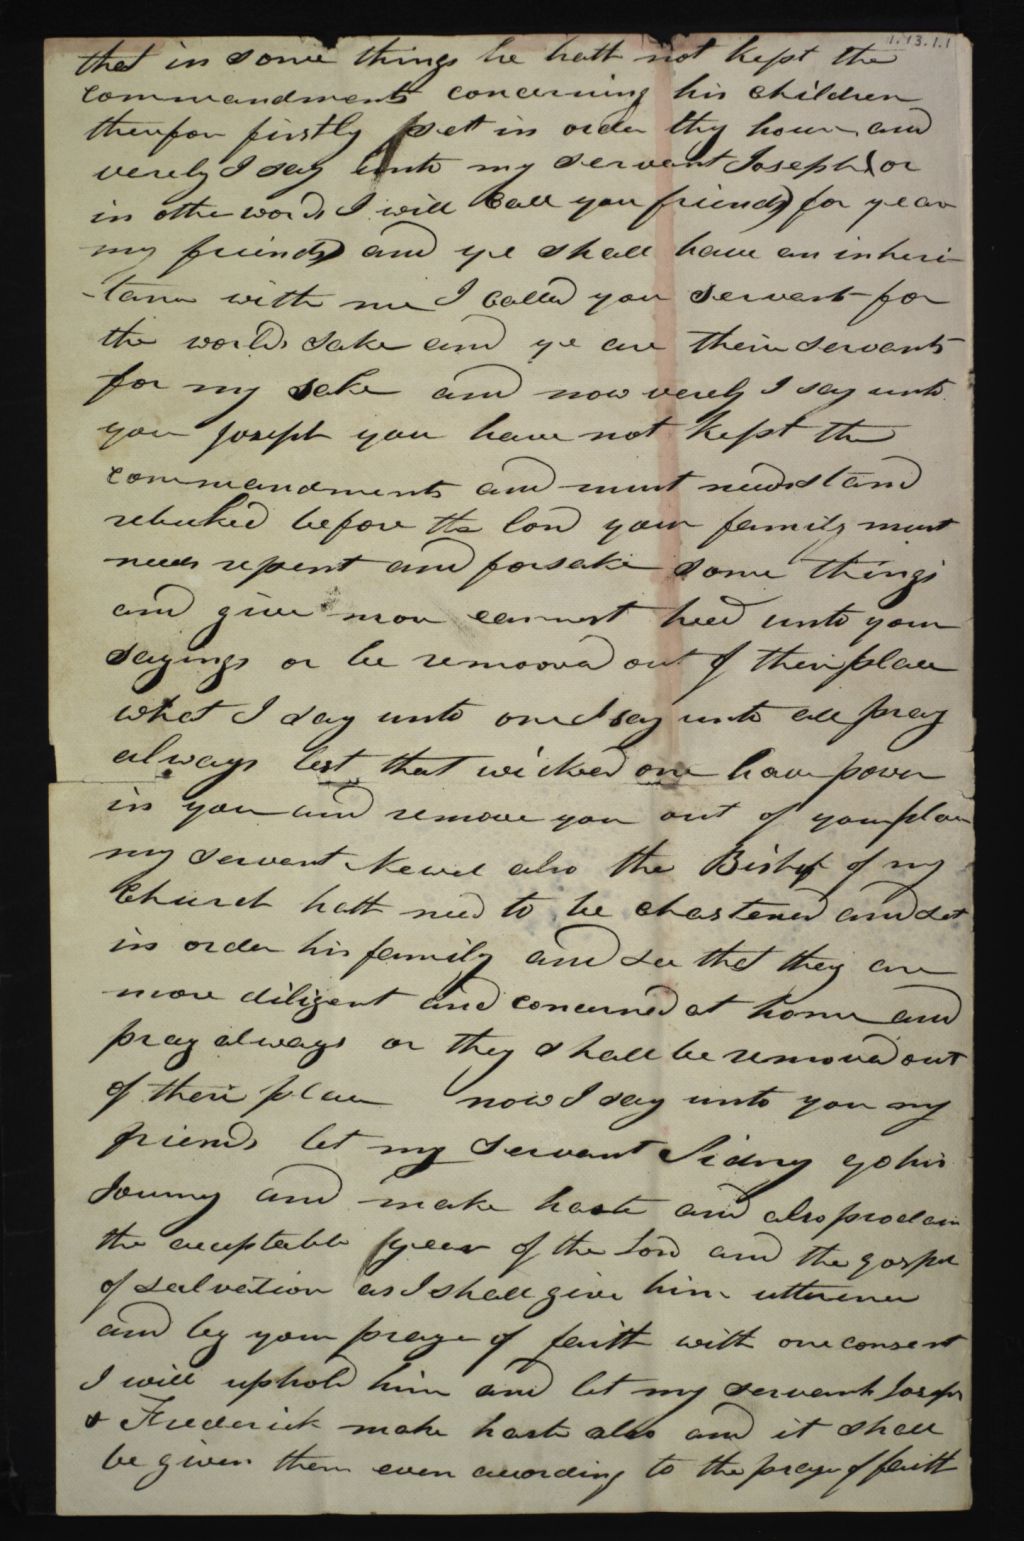 1.13.1.1
that in some things he hath not kept the
commandments concerning his children
therefor firstly set in order thy house and
verely I say unto my servant Joseph (or
in other words I will call you friends) for ye are
my friends and ye shall have an inheri-
-tance with me I called you servants for
the worlds sake and ye are their servants
for my sake and now verely I say unto
you Joseph you have not kept the
commandments and must needs stand
rebuked before the lord your family must
needs repent and forsake some things
and give more earnest heed unto your
sayings or be remooved out of their place
what I say unto one I say unto all pray
always lest that wicked one have power
in you and remove you out of your place
my servant Newel also the Bishop of my
Church hath need to be chastened and set
in order his family and see that they are
more diligent and concerned at home and
pray always or they shall be removed out
of their place now I say unto you my
friends let my servant Sidney go his
Journey and make haste and also proclaim
the acceptable year of the Lord and the gospel
of salvation as I shall give him utterence
and by your prayer of faith with one consent
I will uphold him and let my servants Joseph
& Frederick make haste also and it shall
be given them even according to the prayer of faith